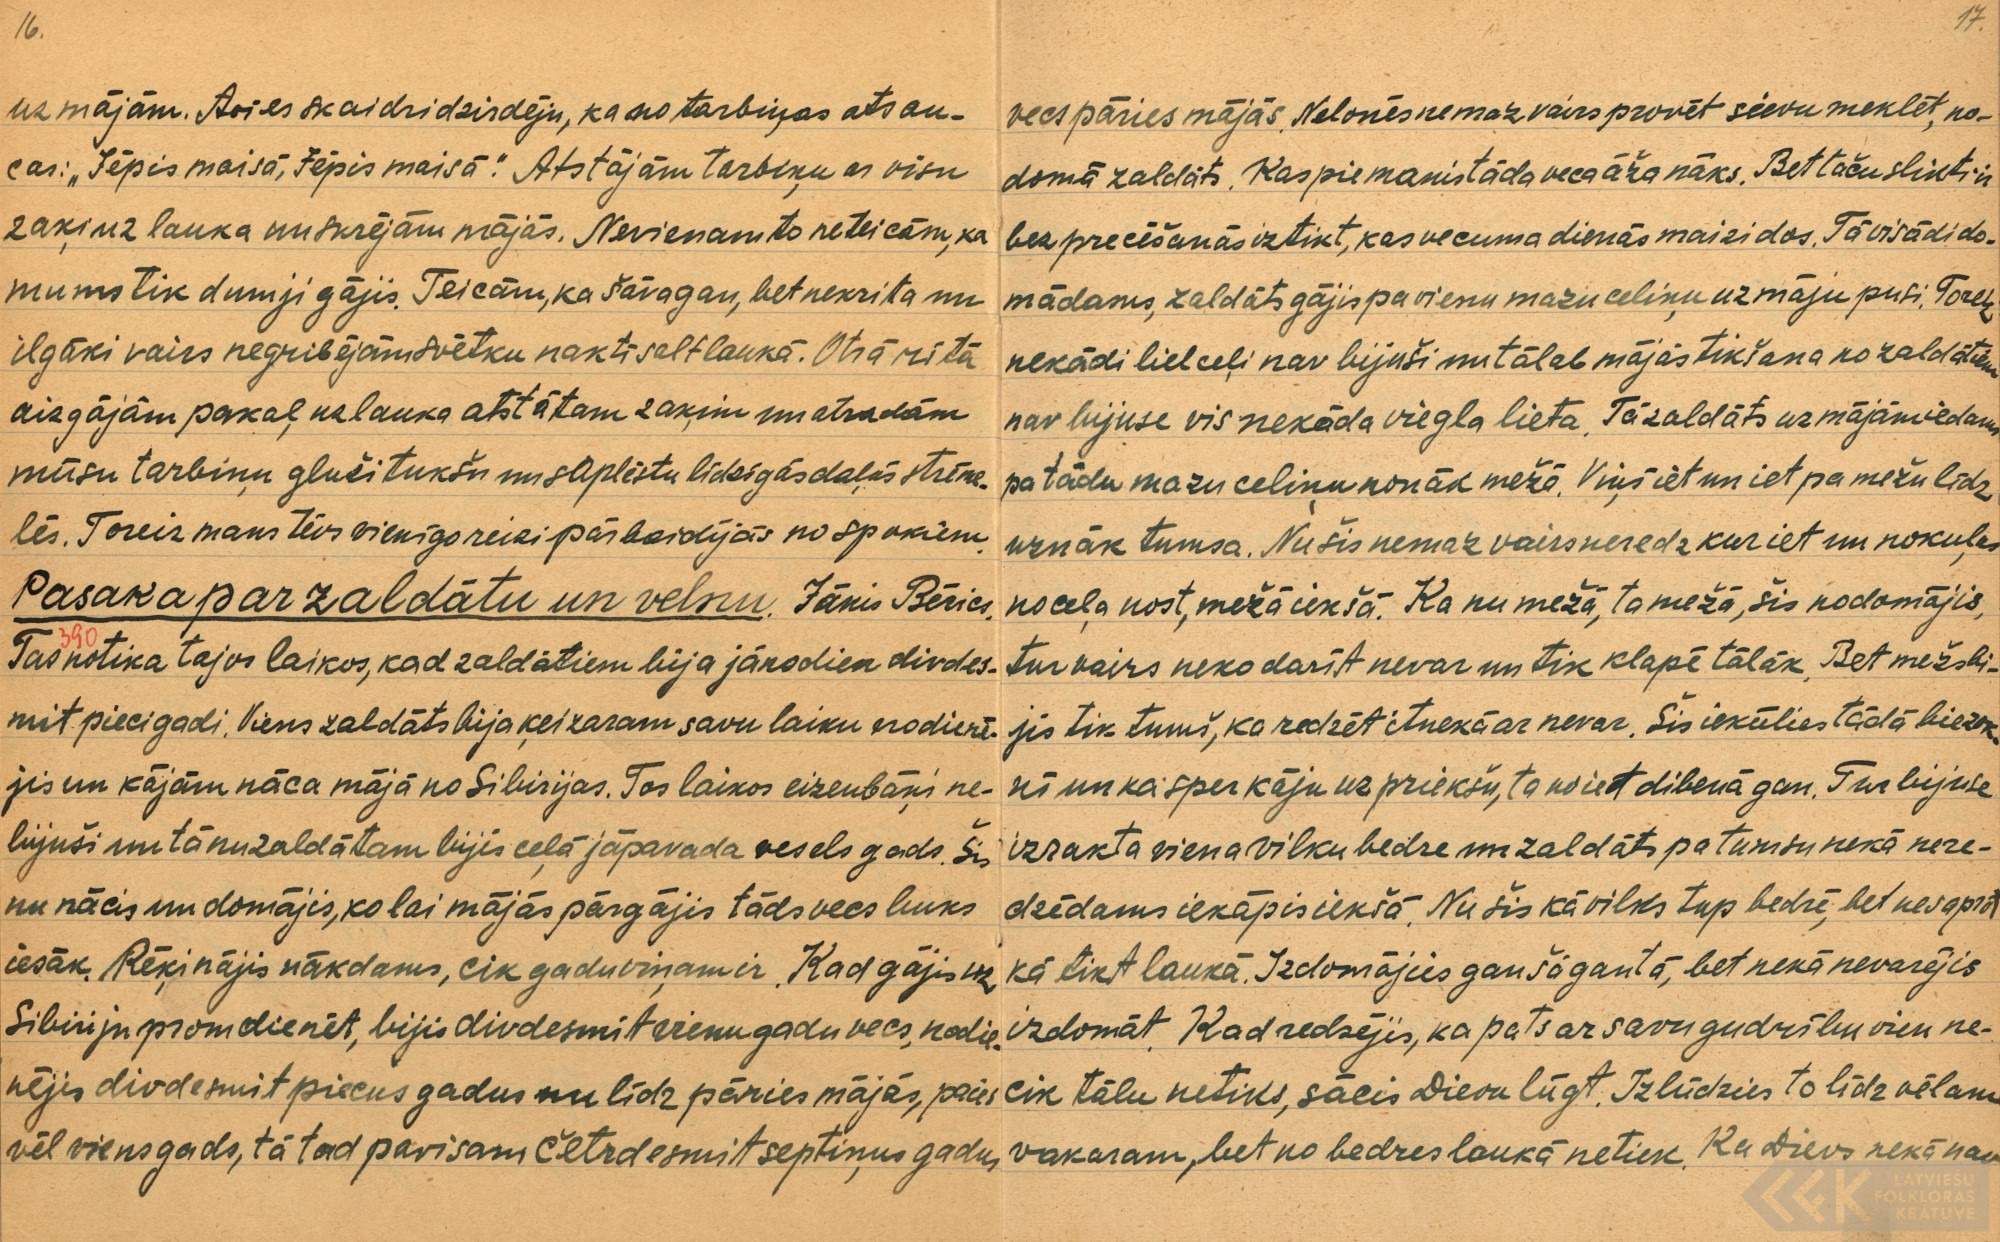 16.
uz mājām. Arī es skaidri dzirdēju, ka no tarbiņas atsau-
cas: „Jēpis maisā, Jēpis maisā". Atstājām tarbiņu ar visu
zaķi uz lauka un skrējām mājās. Nevienam to neteicām, ka
mums tik dumji gājis. Teicām, ka šāva gan, bet nekrita un
ilgāki vairs negribējām svētku naktī salt laukā. Otrā rītā
aizgājām pakaļ uz lauka atstātam zaķim un atradām
mūsu tarbiņu gluži tukšu un saplēstu līdzīgās daļās strēme-
lēs. Toreiz mans tēvs vienīgo reizi pārbaidījās no spokiem.
Pasaka par zaldātu un velnu. Jānis Bērics.
390
Tas notika tajos laikos, kad zaldātiem bija jānodien divdes-
mit pieci gadi. Viens zaldāts bija ķeizaram savu laiku nodienē-
jis un kājām nāca mājā no Sibirijas. Tos laikos eizenbāņi ne-
bijuši un tā nu zaldātam bijis ceļā jāpavada vesels gads. Šis
nu nācis un domājis, ko lai mājās pārgājis tāds vecs buks
iesāk. Rēķinājis nākdams, cik gadu viņam ir. Kad gājis uz
Sibiriju prom dienēt, bijis divdesmit vienu gadu vecs, nodie-
nējis divdesmit piecus gadus nu līdz pāries mājās, paies
vēl viens gads, tā tad pavisam četrdesmit septiņus gadus
17.
vecs pāries mājās. Nelonēs nemaz vairs provēt sievu meklēt, no-
domā zaldāts. Kas pie manis tāda veca āža nāks. Bet taču slikti ir
bez precēšanās iztikt, kas vecuma dienās maizi dos. Tā visādi do-
mādams, zaldāts gājis pa vienu mazu celiņu uz māju pusi. Toreiz
nekādi lielceļi nav bijuši un tālab mājās tikšana no zaldātiem
nav bijuse vis nekāda viegla lieta. Tā zaldāts uz mājām iedams
pa tādu mazu celiņu nonāk mežā. Viņš iet un iet pa mežu līdz
uznāk tumsa. Nu šis nemaz vairs neredz kur iet un nokuļas
no ceļa nost, mežā iekšā. Ka nu mežā, ta mežā, šis nodomājis,
tur vairs neko darīt nevar un tik klapē tālāk. Bet mežs bi-
jis tik tumš, ka redzēt itnekā ar nevar. Šis iekūlies tādā biezok-
nī un kā sper kāju uz priekšu, ta noiet dibenā gan. Tur bijuse
izrakta viena vilku bedre un zaldāts pa tumsu nekā nere-
dzēdams iekāpis iekšā. Nu šis kā vilks tup bedrē, bet nesaprot
kā tikt laukā. Izdomājies gan šā gan tā, bet nekā nevarējis
izdomāt. Kad redzējis, ka pats ar savu gudrību vien ne-
cik tālu netiks, sācis Dievu lūgt. Izlūdzies to līdz vēlam
vakaram, bet no bedres laukā netiek. Ka Dievs nekā nav
LATVIEŠU
FOLKLORAS
KRĀTUVE